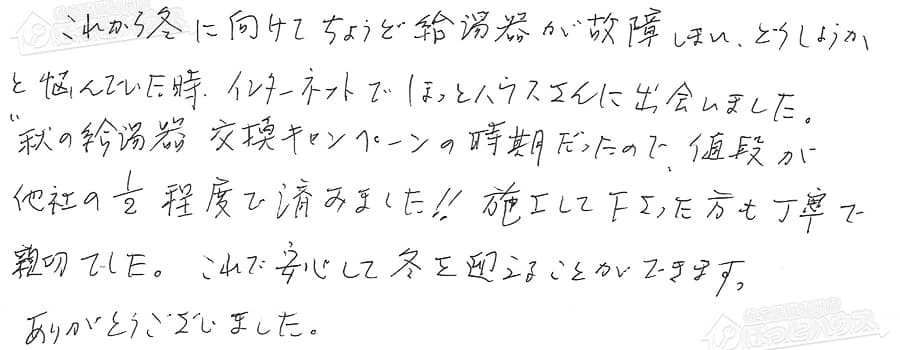 これから冬に向けてちょうど給湯器が故障しまい、どうしようか
と悩んでいた時、インターネットでほっとハウスさんに出会いました。
"秋の給湯器 交換キャンペーンの時期だったので、値段が
他社の1/2 程度で済みました!! 施工して下さった方も丁寧で
親切でした。これで安心して冬を迎えることができます。
ありがとうございました。